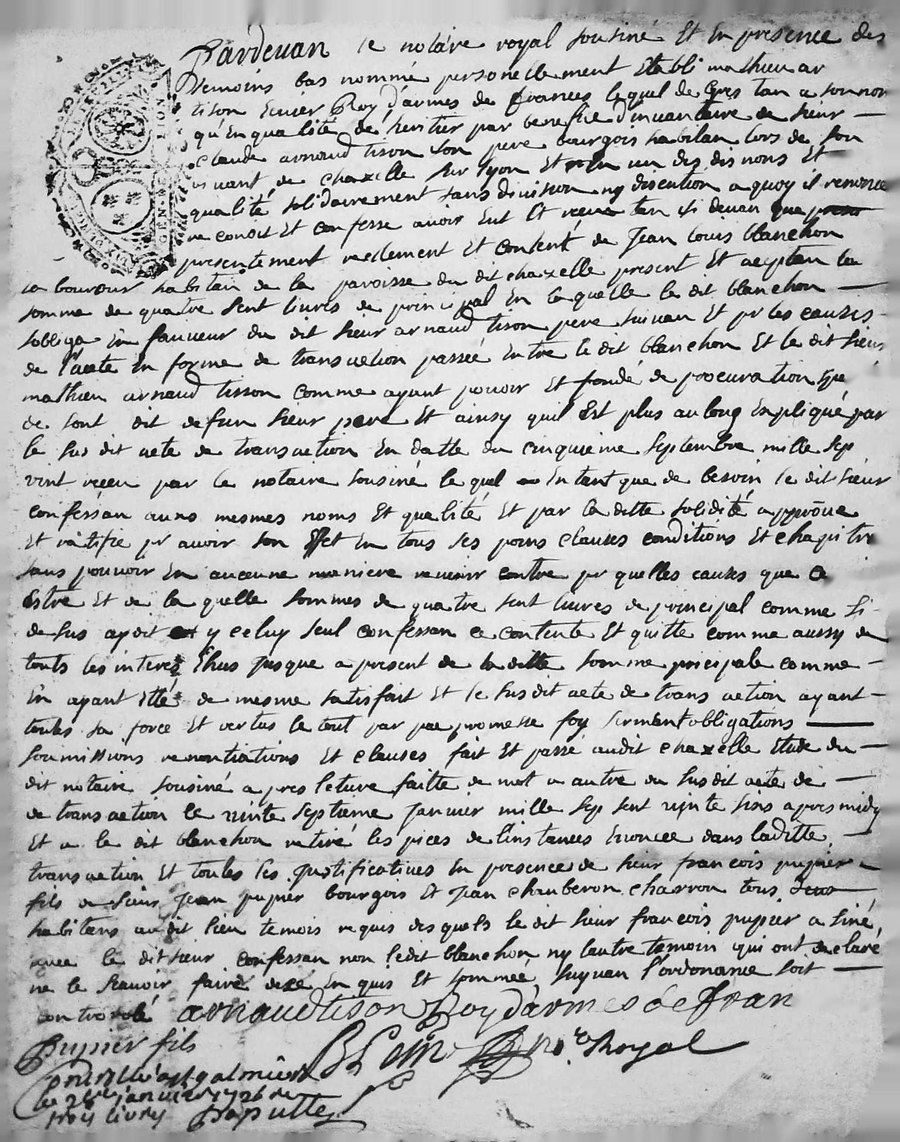 Pardevan le notaire royal sousiné Et En presence des
temoins bas nommé personellement Etabli mathieu ar
tison Ecuier Roy d'armes de france lequel de Gres tan a son nom
qu'En qualité de heritier par benefice d'inventaire de sieur
claude arnaud tison son pere bourgois habitan lors de son
vivant de chazelle sur lyon Et En un des dis nons Et
qualité solidairement sans division ny discution a quoy il renonce
reconoit Et confesse avoir Eut Et receu tan si devan que
presentement reellement Et content de Jean Louis blanchon
laboureur habitain de la paroisse du dit chazelle present Et aceptan la
somme de quatre sent livres de principal En laquelle le dit blanchon
sobliga En faveur du dit sieur arnaud tison pere suivan Et pr les causes
de l'acte En forme de transaction passée Entre le dit blanchon Et le dit sieur
mathieu arnaud tison comme ayant pouvoir Et fondé de procuration
de sont dit defun sieur pere Et ainsy quil Est plus au long Expliqué par
le sus dit acte de transaction En datte du cinquieme septembre mille sep
vint receu par le notaire sousiné lequel En tant que de besoin le dit sieur
confessan aux mesmes noms Et qualité Et par la ditte solidité approuve
Et ratifie pr avoir son Effet En tous ses poins clauses conditions Et chapitre
sans pouvoir En aucune maniere revenir contre pr quelles causes que ce
Estre Et de la quelle sommes de quatre sent livres de principal comme si
desus a y celuy seul confessan ce contente Et quitte comme aussy de
touts les interes Ehus jusque a present de la ditte somme principale comme
En ayant Etté de mesme satisfait Et le susdit acte de transaction ayant
toutes sa force Et vertus le tout par promesse foy serment obligations
soumissions renontiations Et clauses fait Et passe audit chazelle Etude du
dit notaire sousiné apres leture faitte de mot a autre du susdit acte de
de transaction le vinte septieme Janvier mille sep sent vinte sins apres midy
Et a le dit blanchon retiré les pices de l'instances Enoncee dans laditte
transaction Et toutes ses justificatives En presence de sieur francois pupier
fils a sieur Jean pupier bourgois Et Jean chauberon charron tous
habitans audit lieu temois requis desquels le dit sieur francois pupier a siné
avec le dit sieur confessan non ledit blanchon ny lautre temoin qui ont declaré
ne le scavoir faire de ce Enquis Et sommée suivan l'ordonance soit
controlé arnaud tison Roy d'armes de fran
Pupier fils not. Royal
le janvier
trois livres